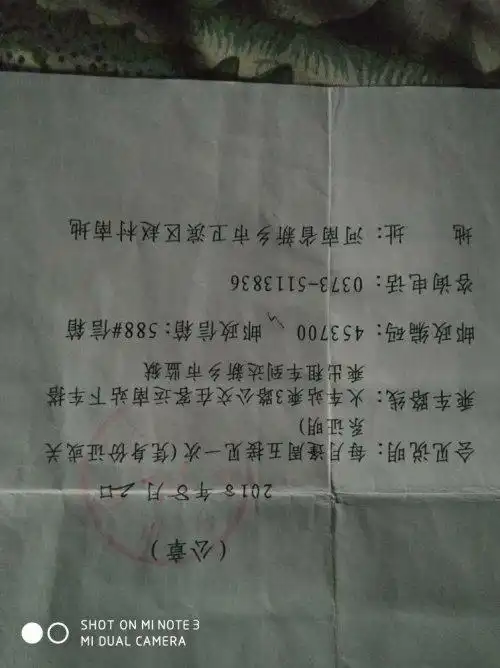 (公章)
2018年8月20日
会见说明:每月逢周五接见一次(凭身份证或关
系证明)
乘车路线:火车站乘3路公交在客运南站下车搭
乘出租车到达新乡市监狱
邮政编码:453700 邮政信箱:588#信箱
咨询电话:0373-5113836
地 址:河南省新乡市卫滨区赵村南地
SHOT ON MI NOTE 3
MI DUAL CAMERA